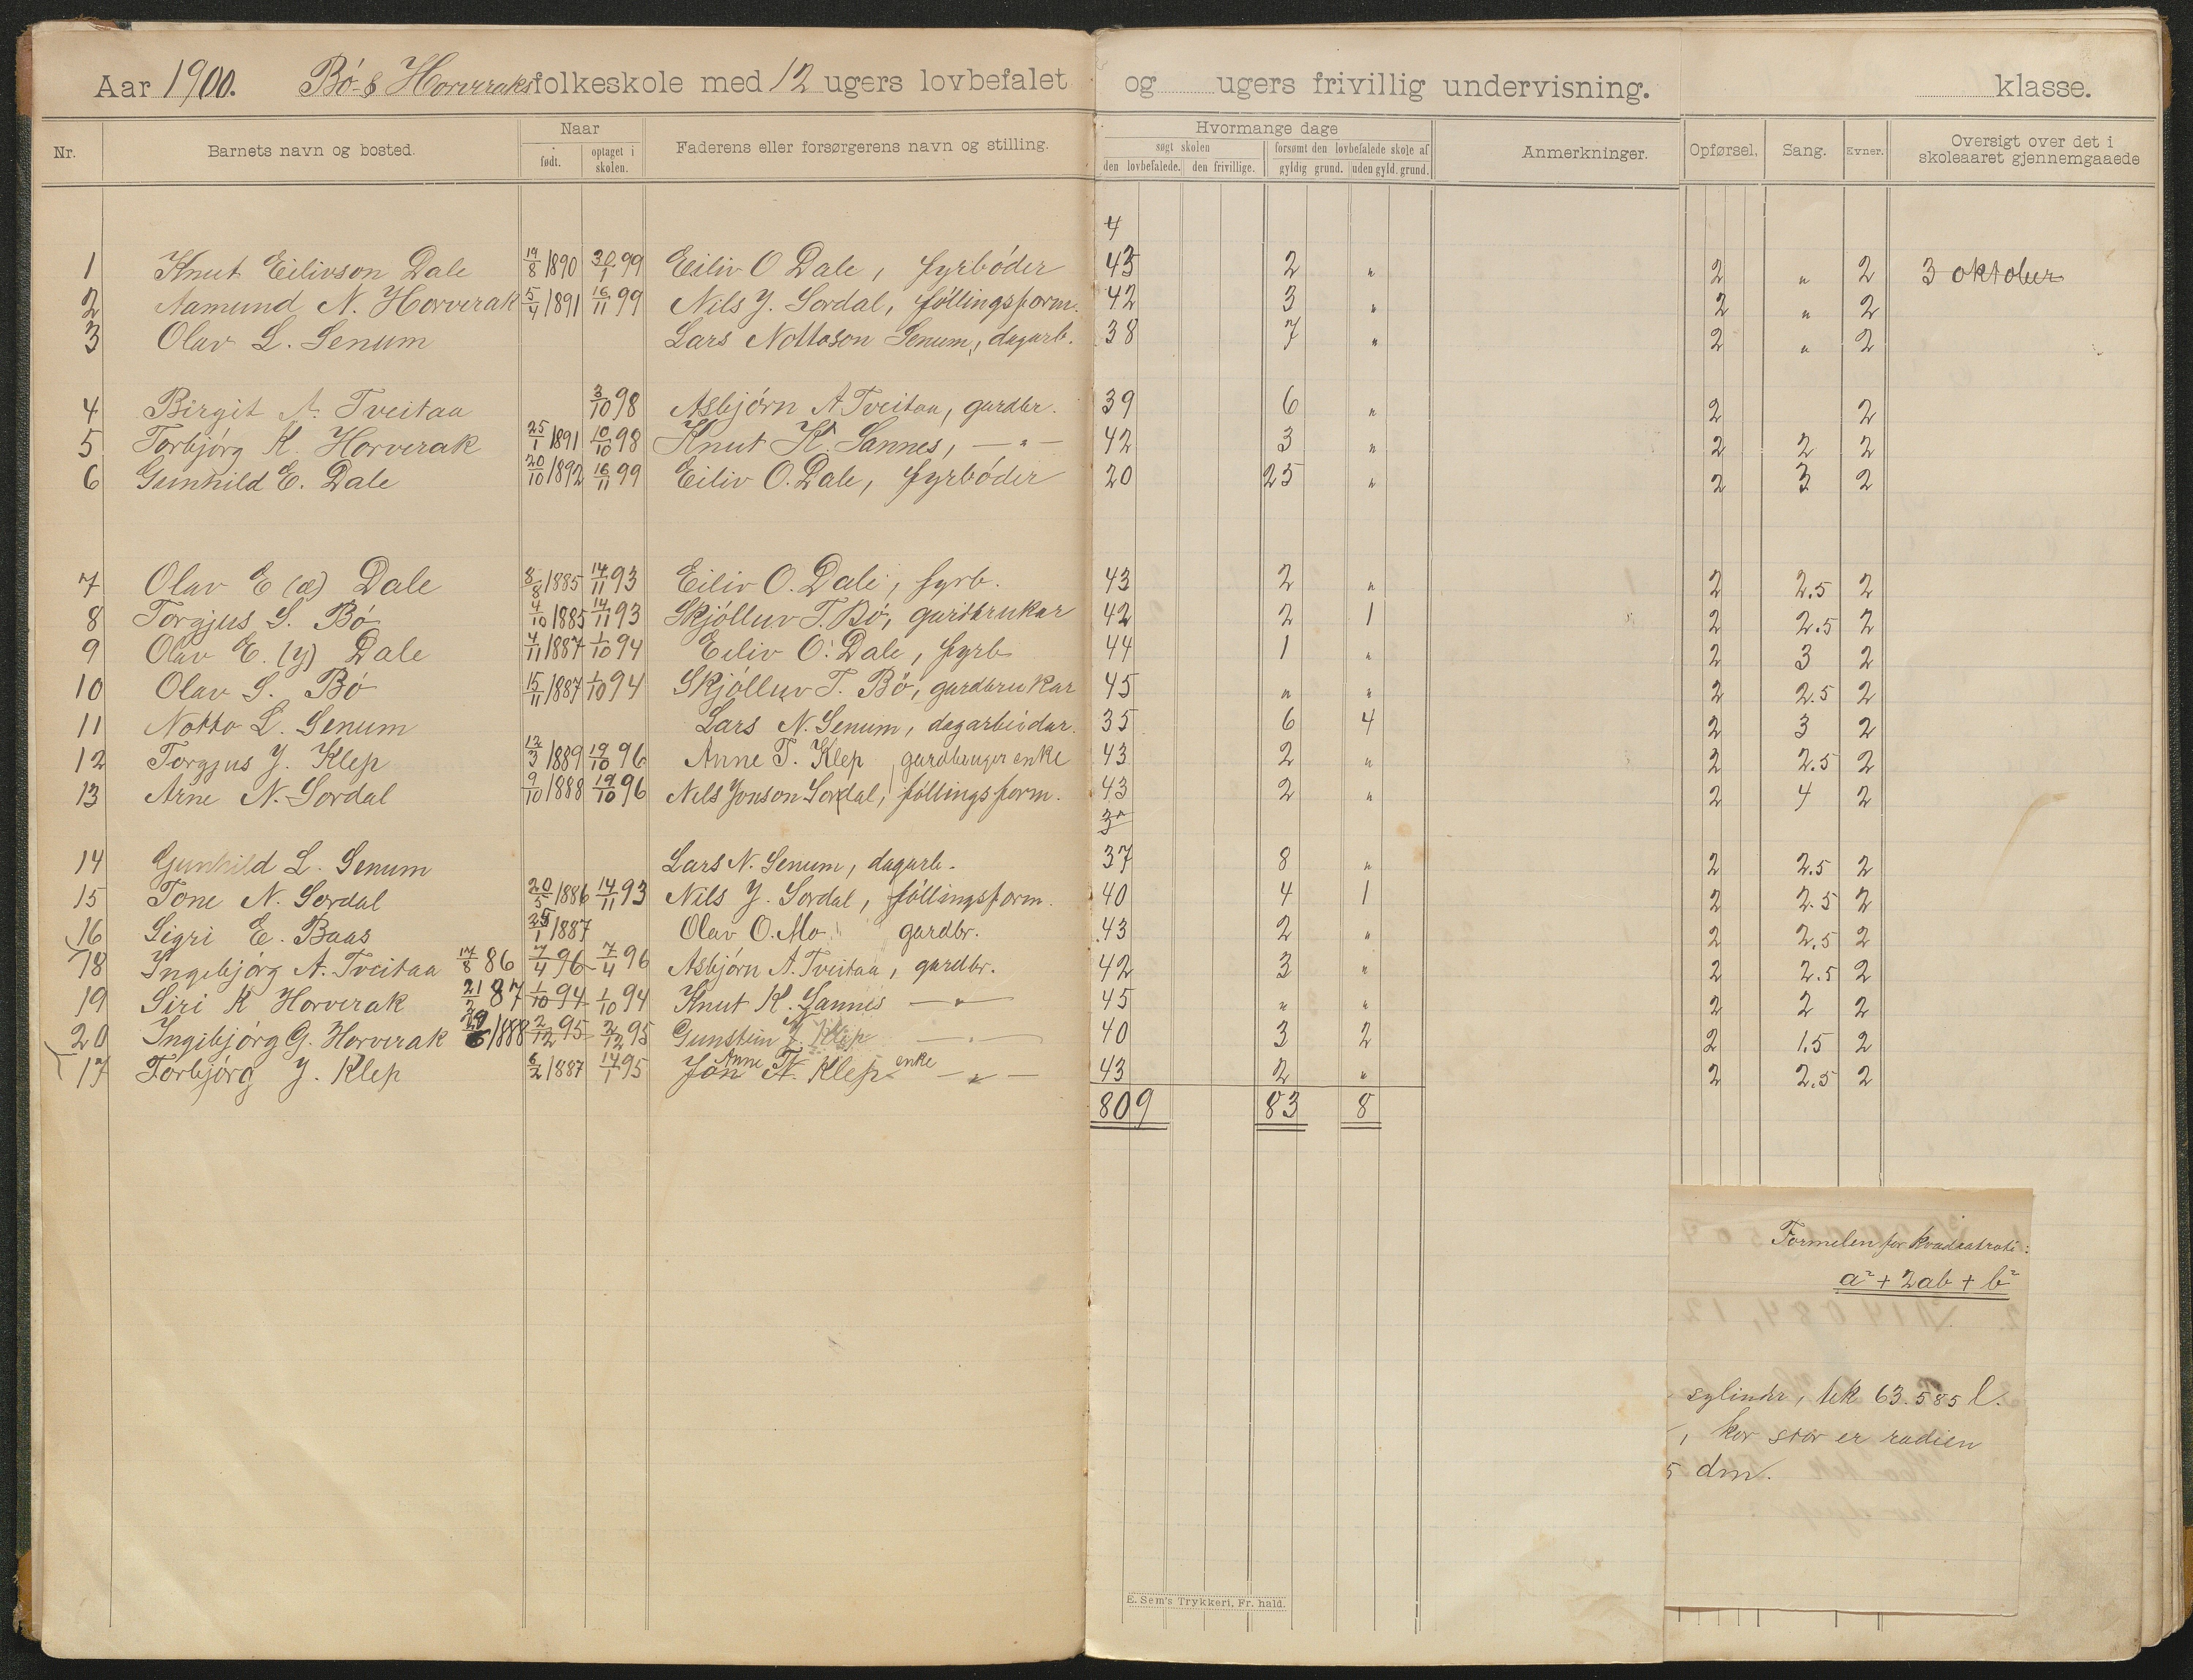 Aar 1900. Bö- & Horveraks folkeskole med 12 ugers lovbefalet og ugers frivillig undervisning. klasse.
Nr. Barnets navn og bosted. Naar født. optaget i skolen. Faderens eller forsørgerens navn og stilling. Hvormange dage søgt skolen den lovbefalede. den frivillige. forsømt den lovbefalede skole af gyldig grund. uden gyld. grund. Anmerkninger. Opførsel. Sang. Evner. Oversigt over det i skoleaaret gjennemgaaede
4
1 Knut Eilivson Dale 19/8 1890 30/1 99 Eiliv O Dale, fyrböder 43 2 " 2 " 2 3 oktober
2 Aamund N. Horverak 5/4 1891 16/11 99 Nils J. Sordal,föllingsform. 42 3 " 2 " 2
3 Olav L. Senum Lars Nottoson Senum, dagarb. 38 7 " 2 " 2
4 Birgit A. Tveitaa 3/10 98 Asbjörn A Tveitaa, gardbr. 39 6 " 2 2
5 Torbjörg K. Horverak 25/1 1891 10/10 98 Knut K. Sannes, — " — 42 3 " 2 2 2
6 Gunhild E. Dale 20/10 1892 16/11 99 Eiliv O. Dale, fyrböder 20 25 " 2 3 2
7 Olav E (æ) Dale 8/8 1885 14/11 93 Eiliv O. Dale, fyrb. 43 2 " 2 2.5 2
8 Torgjus S. Bö 4/10 1885 14/11 93 Skjölluv T. Bö, gardbrukar 42 2 1 2 2.5 2
9 Olav E. (y) Dale 4/11 1887 1/10 94 Eiliv O. Dale, fyrb 44 1 " 2 3 2
10 Olav S. Bö 15/11 1887 1/10 94 Skjölluv T. Bö, gardbrukar 45 " " 2 2.5 2
11 Notto L. Senum Lars N. Senum, dagarbeidar. 35 6 4 2 3 2
12 Torgjus J. Klep 12/3 1889 19/10 96 Anne T. Klep, gardbruger enke 43 2 " 2 2.5 2
13 Arne N. Sordal 9/10 1888 19/10 96 Nils Jonson Sordal, föllingsform. 43 2 " 2 4 2
14 Gunhild L. Senum Lars N. Senum, dagarb. 37 8 " 2 2.5 2
15 Tone N. Sordal 20/5 1886 14/11 93 Nils J. Sordal, föllingsform. 40 4 1 2 2.5 2
16 Sigri E. Baas 25/1 1887 Olav O. Mo gardbr. 43 2 " 2 2.5 2
18 Ingebjörg A. Tveitaa 17/8 86 7/4 96 7/4 96 Asbjörn A. Tveitaa, gardbr. 42 3 " 2 2.5 2
19 Siri K Horverak 21/2 87 1/10 94 1/10 94 Knut K. Sannes — " — 45 " " 2 2 2
20 Ingibjörg G. Horverak 29/6 1888 2/12 95 2/12 95 Gunstein J. Klep — " — 40 3 2 2 1.5 2
17 Torbjörg J. Klep 6/2 1887 14/1 95 Jon Anne T. N. Klep enke — " — 43 2 " 2 2.5 2
809 83 8
Formelen for kvadratroti:
a² + 2ab + b²
sylinder, tek 63.585 l.
, kor stor er radien
5 dm.
E. Sem's Trykkeri, Fr. hald.